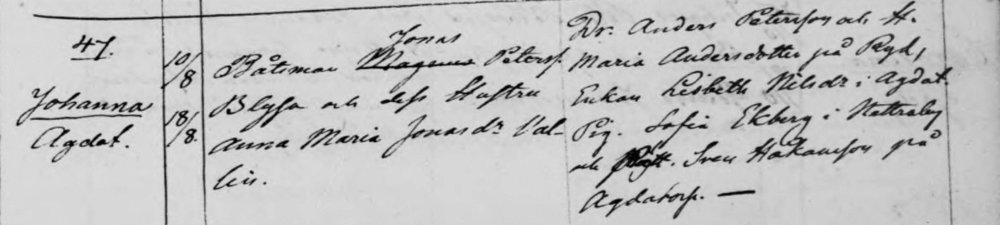 47.
Johanna
Agdat.
10/8
18/8.
Jonas
Båtsman Magnus Peterss.
Blyssa och dess Hustru
Anna Maria Jonasdr. Cal-
lin.
Dr. Anders Petersson och H.
Maria Andersdotter på Ryd,
Enkan Lisbeth Nilsdr. i Agdat.
Pig. Sofia Ekberg i Nettraby
och Sven Håkansson på
Agdatorp. —